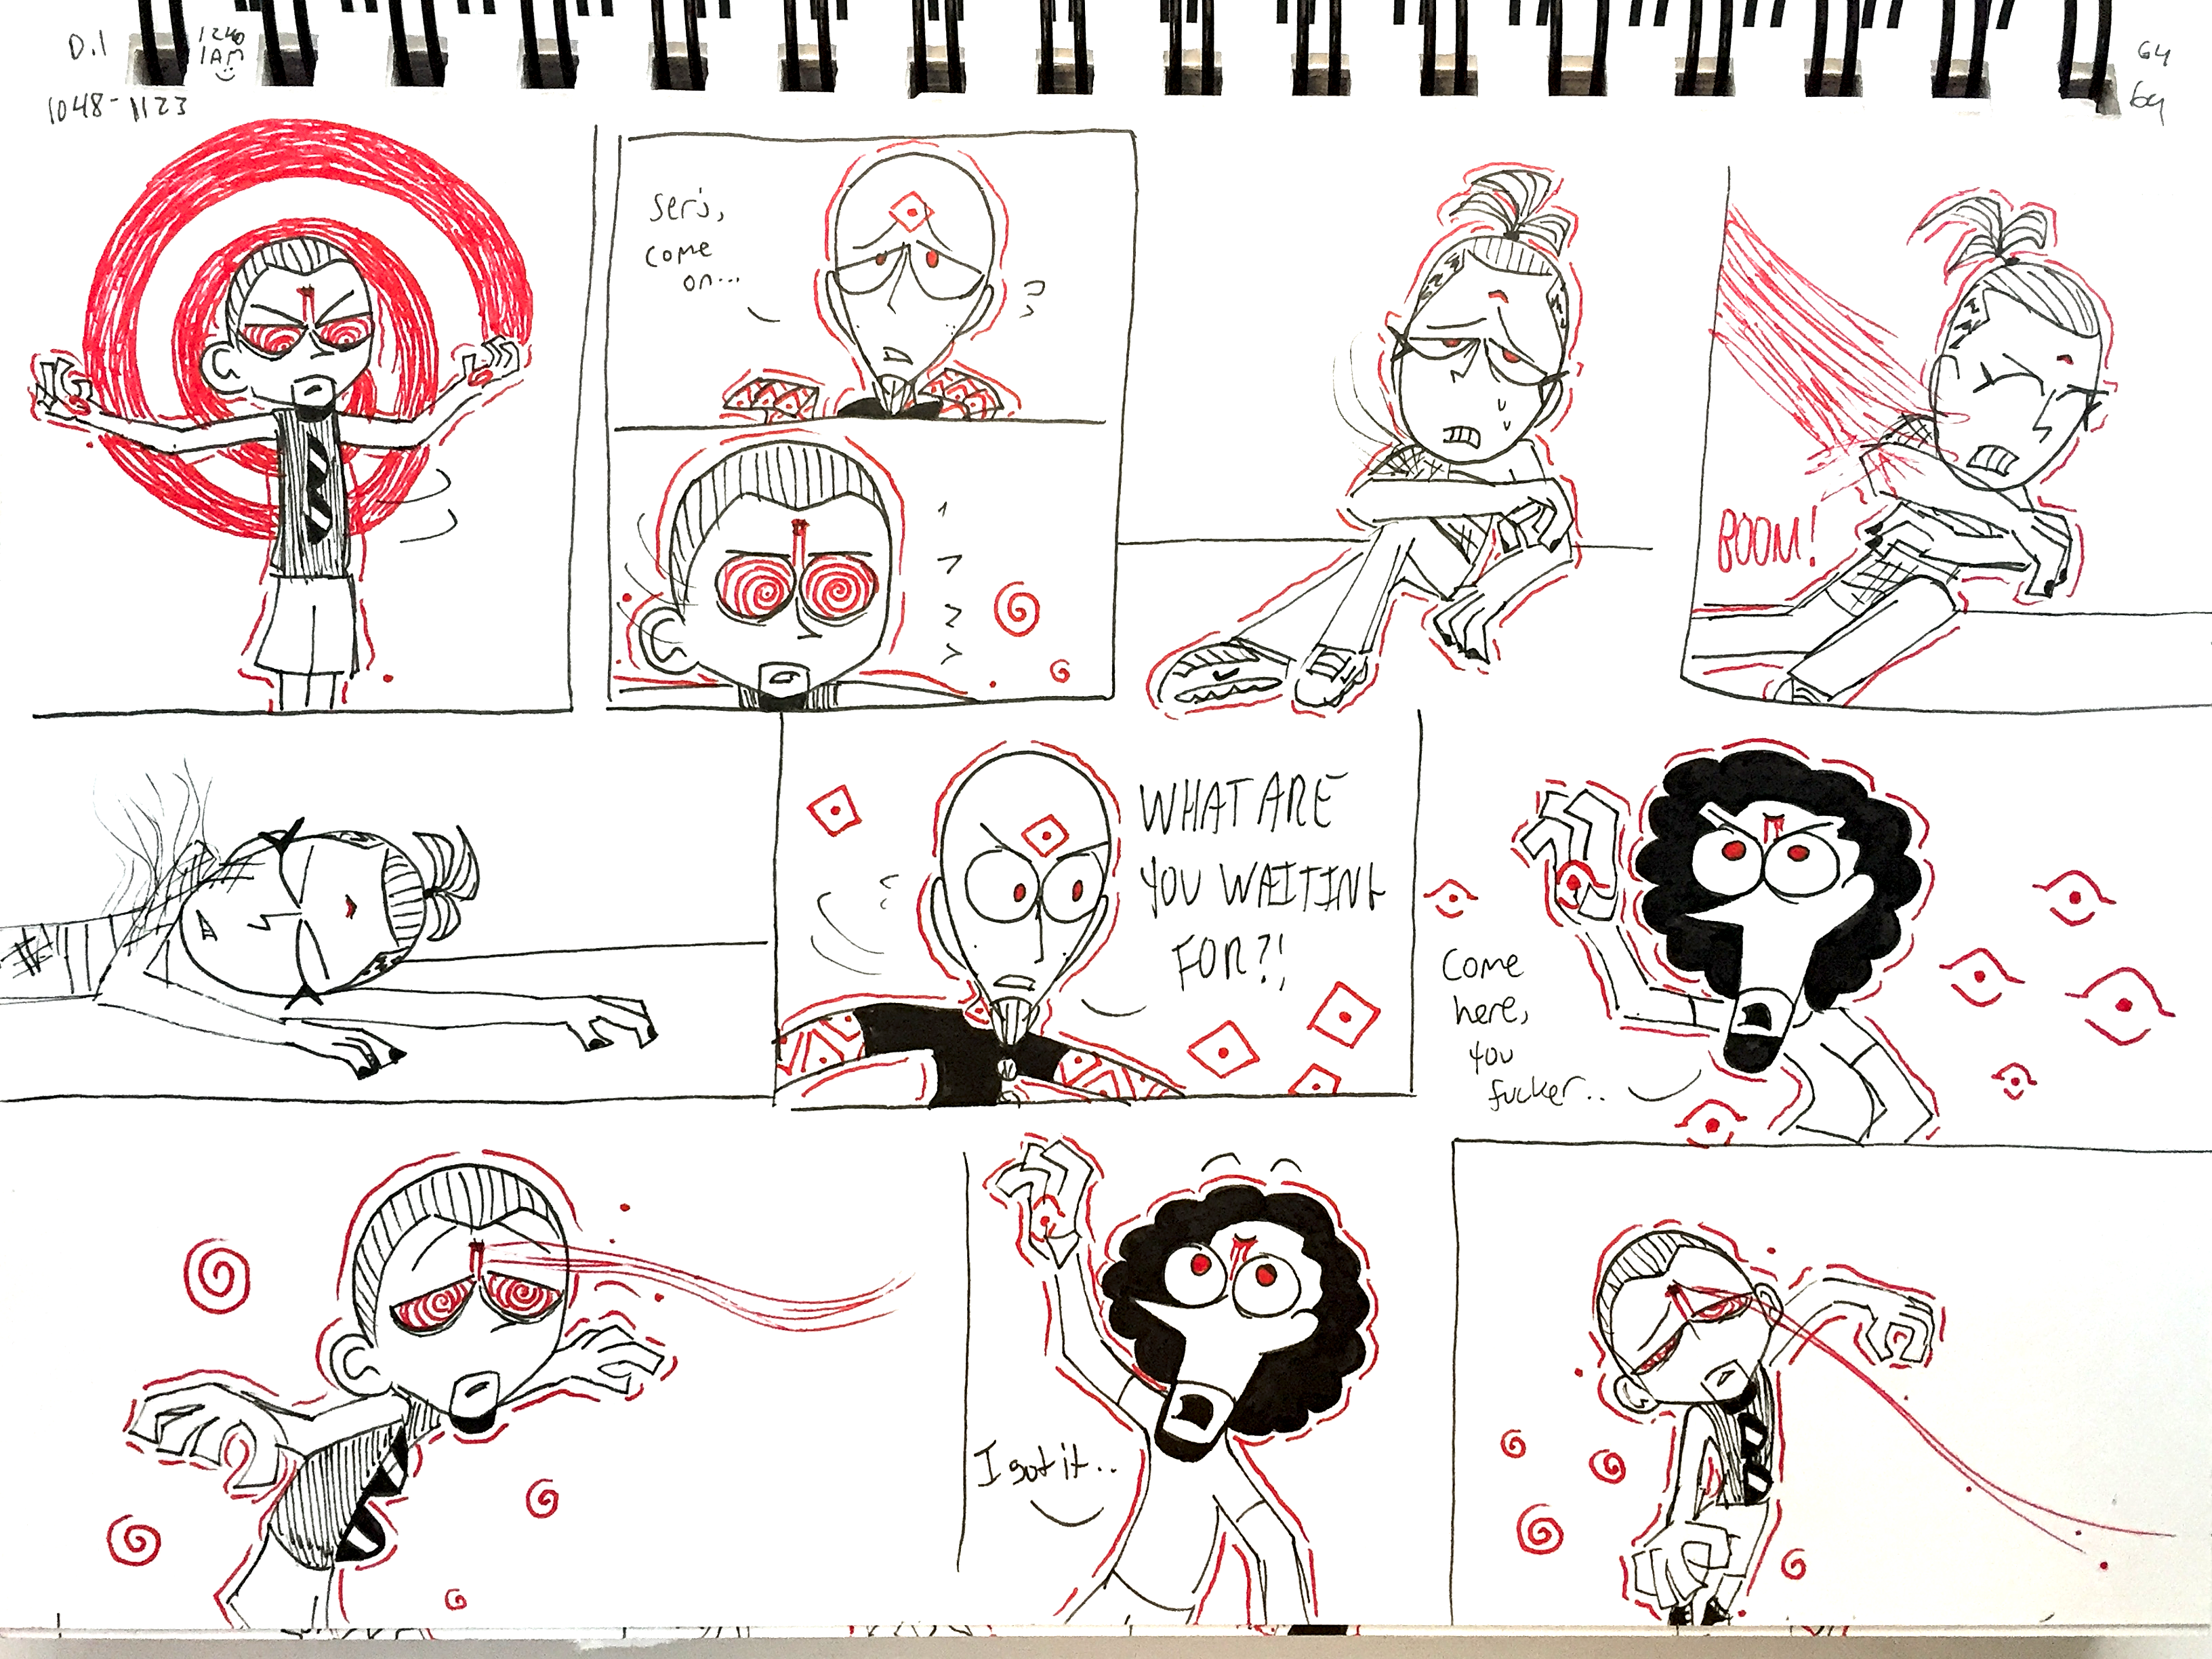 D.1
1240
1AM
1048-1123
64
64
Serj,
come
on...
BOOM!
WHAT ARE
YOU WAITING
FOR?!
Come
here,
you
fucker..
I got it..